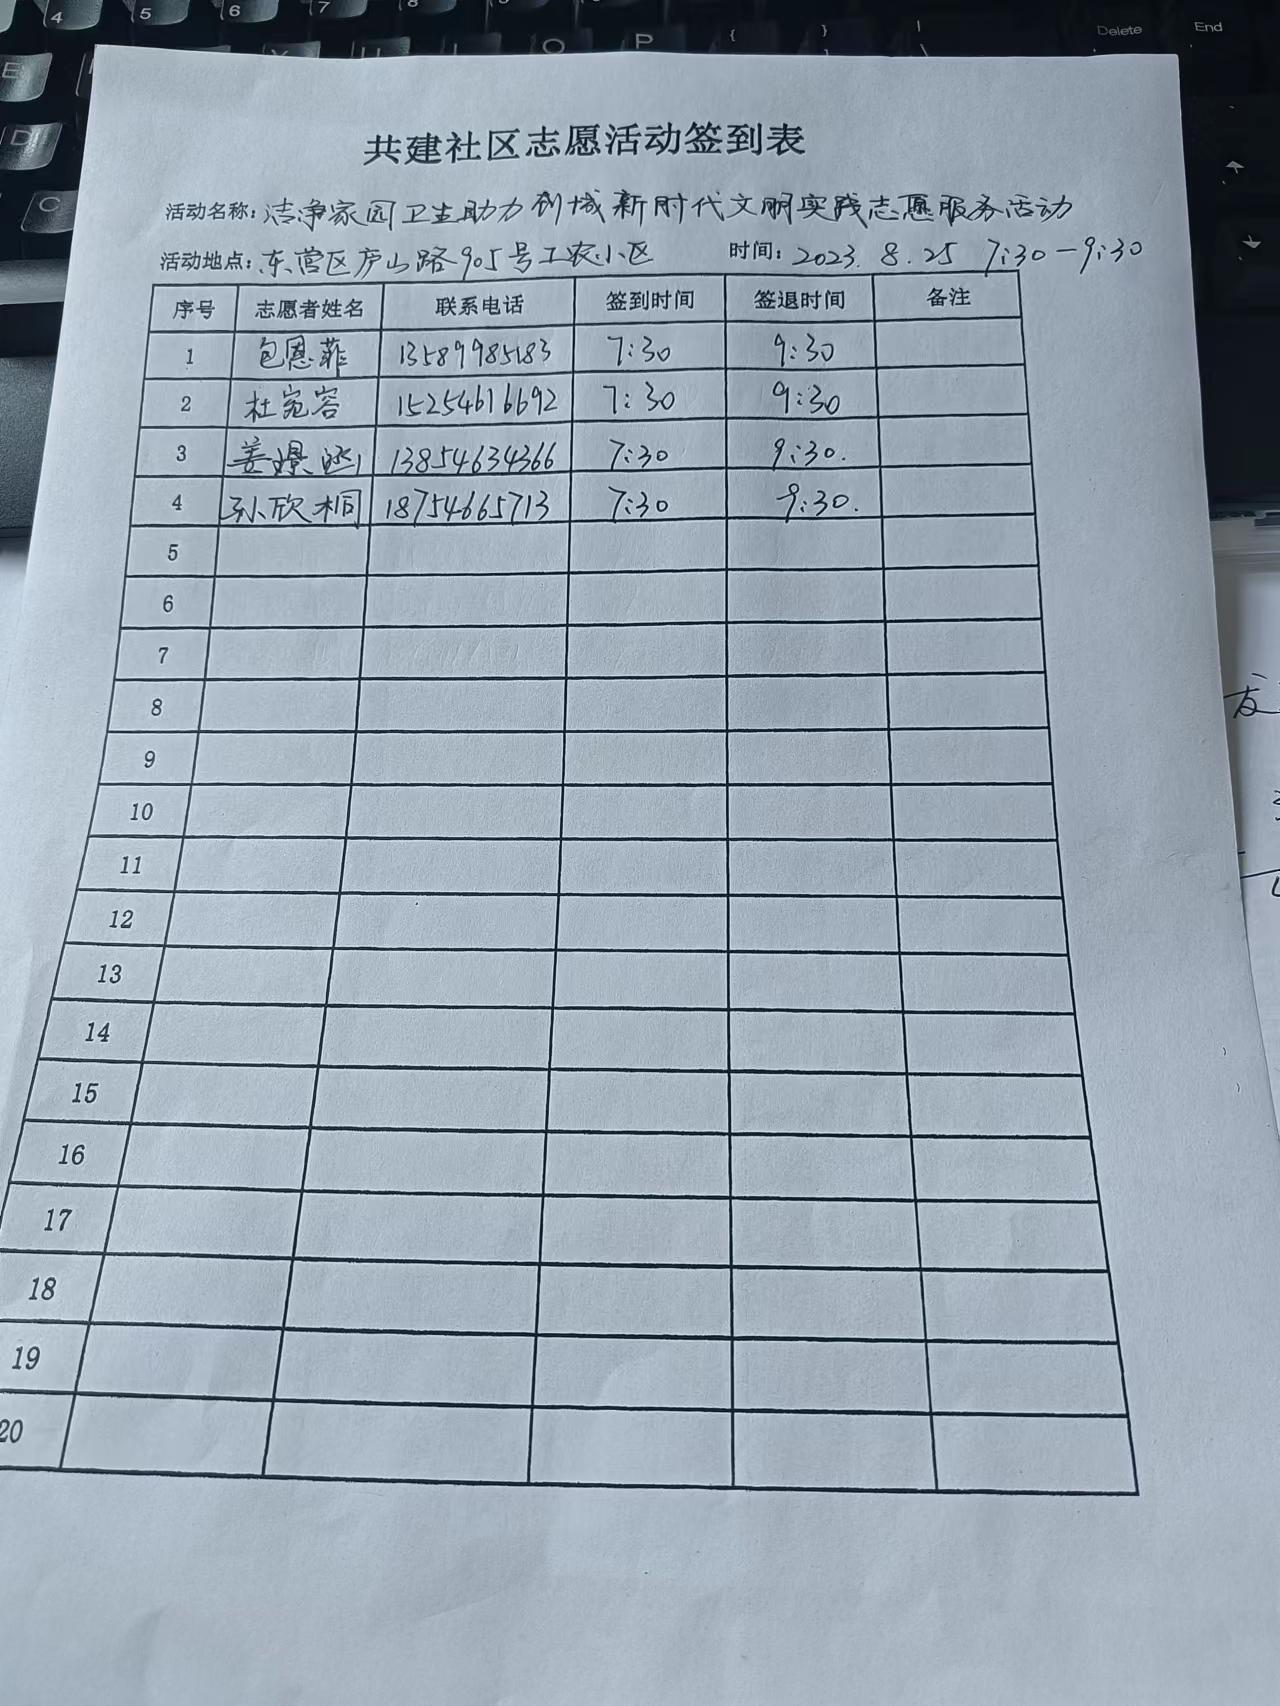 共建社区志愿活动签到表
活动名称：洁净家园卫生助力创城新时代文明实践志愿服务活动
活动地点：东营区庐山路905号工农小区 时间：2023.8.25 7:30-9:30
序号 志愿者姓名 联系电话 签到时间 签退时间 备注
1 包恩菲 13589985183 7:30 9:30
2 杜宛容 15254616692 7:30 9:30
3 姜璟 13854634366 7:30 9:30.
4 孙欣桐 18754665713 7:30 9:30.
5
6
7
8
9
10
11
12
13
14
15
16
17
18
19
20